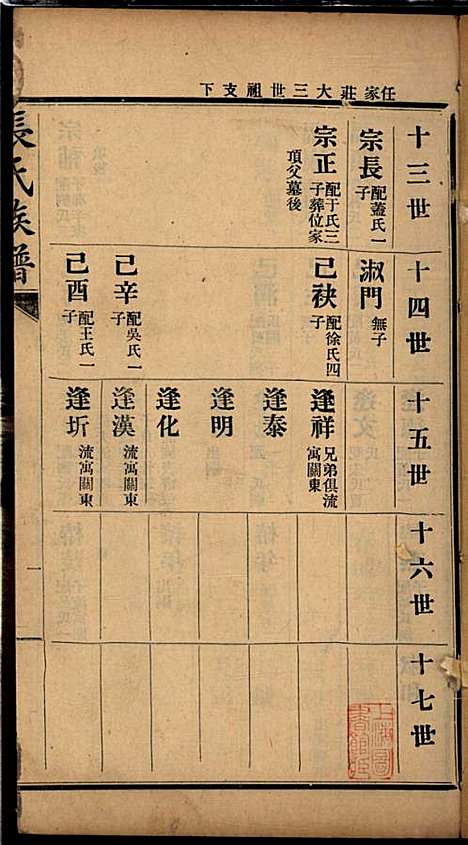 任家莊大三世祖支下
十三世
宗長 配蓋氏一子
宗正 配于氏三子葬位家頂父墓後
十四世
淑門 無子
己袂 配徐氏四子
己辛 配吳氏一子
己酉 配王氏一子
十五世
逢祥 兄弟俱流寓關東
逢泰
逢明
逢化
逢漢 流寓關東
逢圻 流寓關東
十六世
十七世
張氏族譜
一